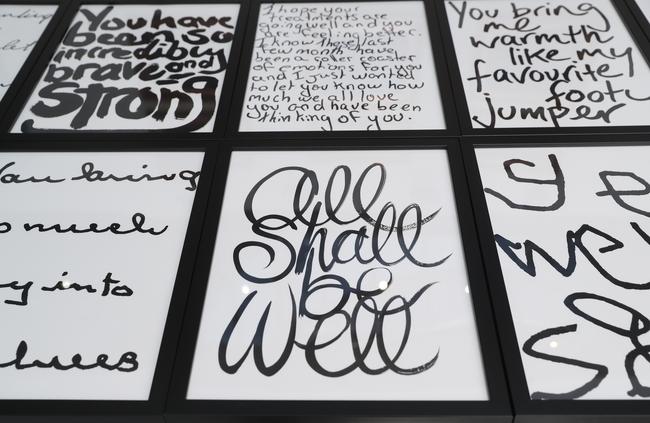 You have
been so
incredibly
brave and
Strong
I hope your
treatments are
going well and you
are feeling better.
I know these last
few months have
been a roller coaster
of emotions for you
and I just wanted
to let you know how
much we all love
you and have been
thinking of you.
You bring
me
warmth
like my
favourite
footy
jumper
You bring
so much
into
All
Shall
be
Well